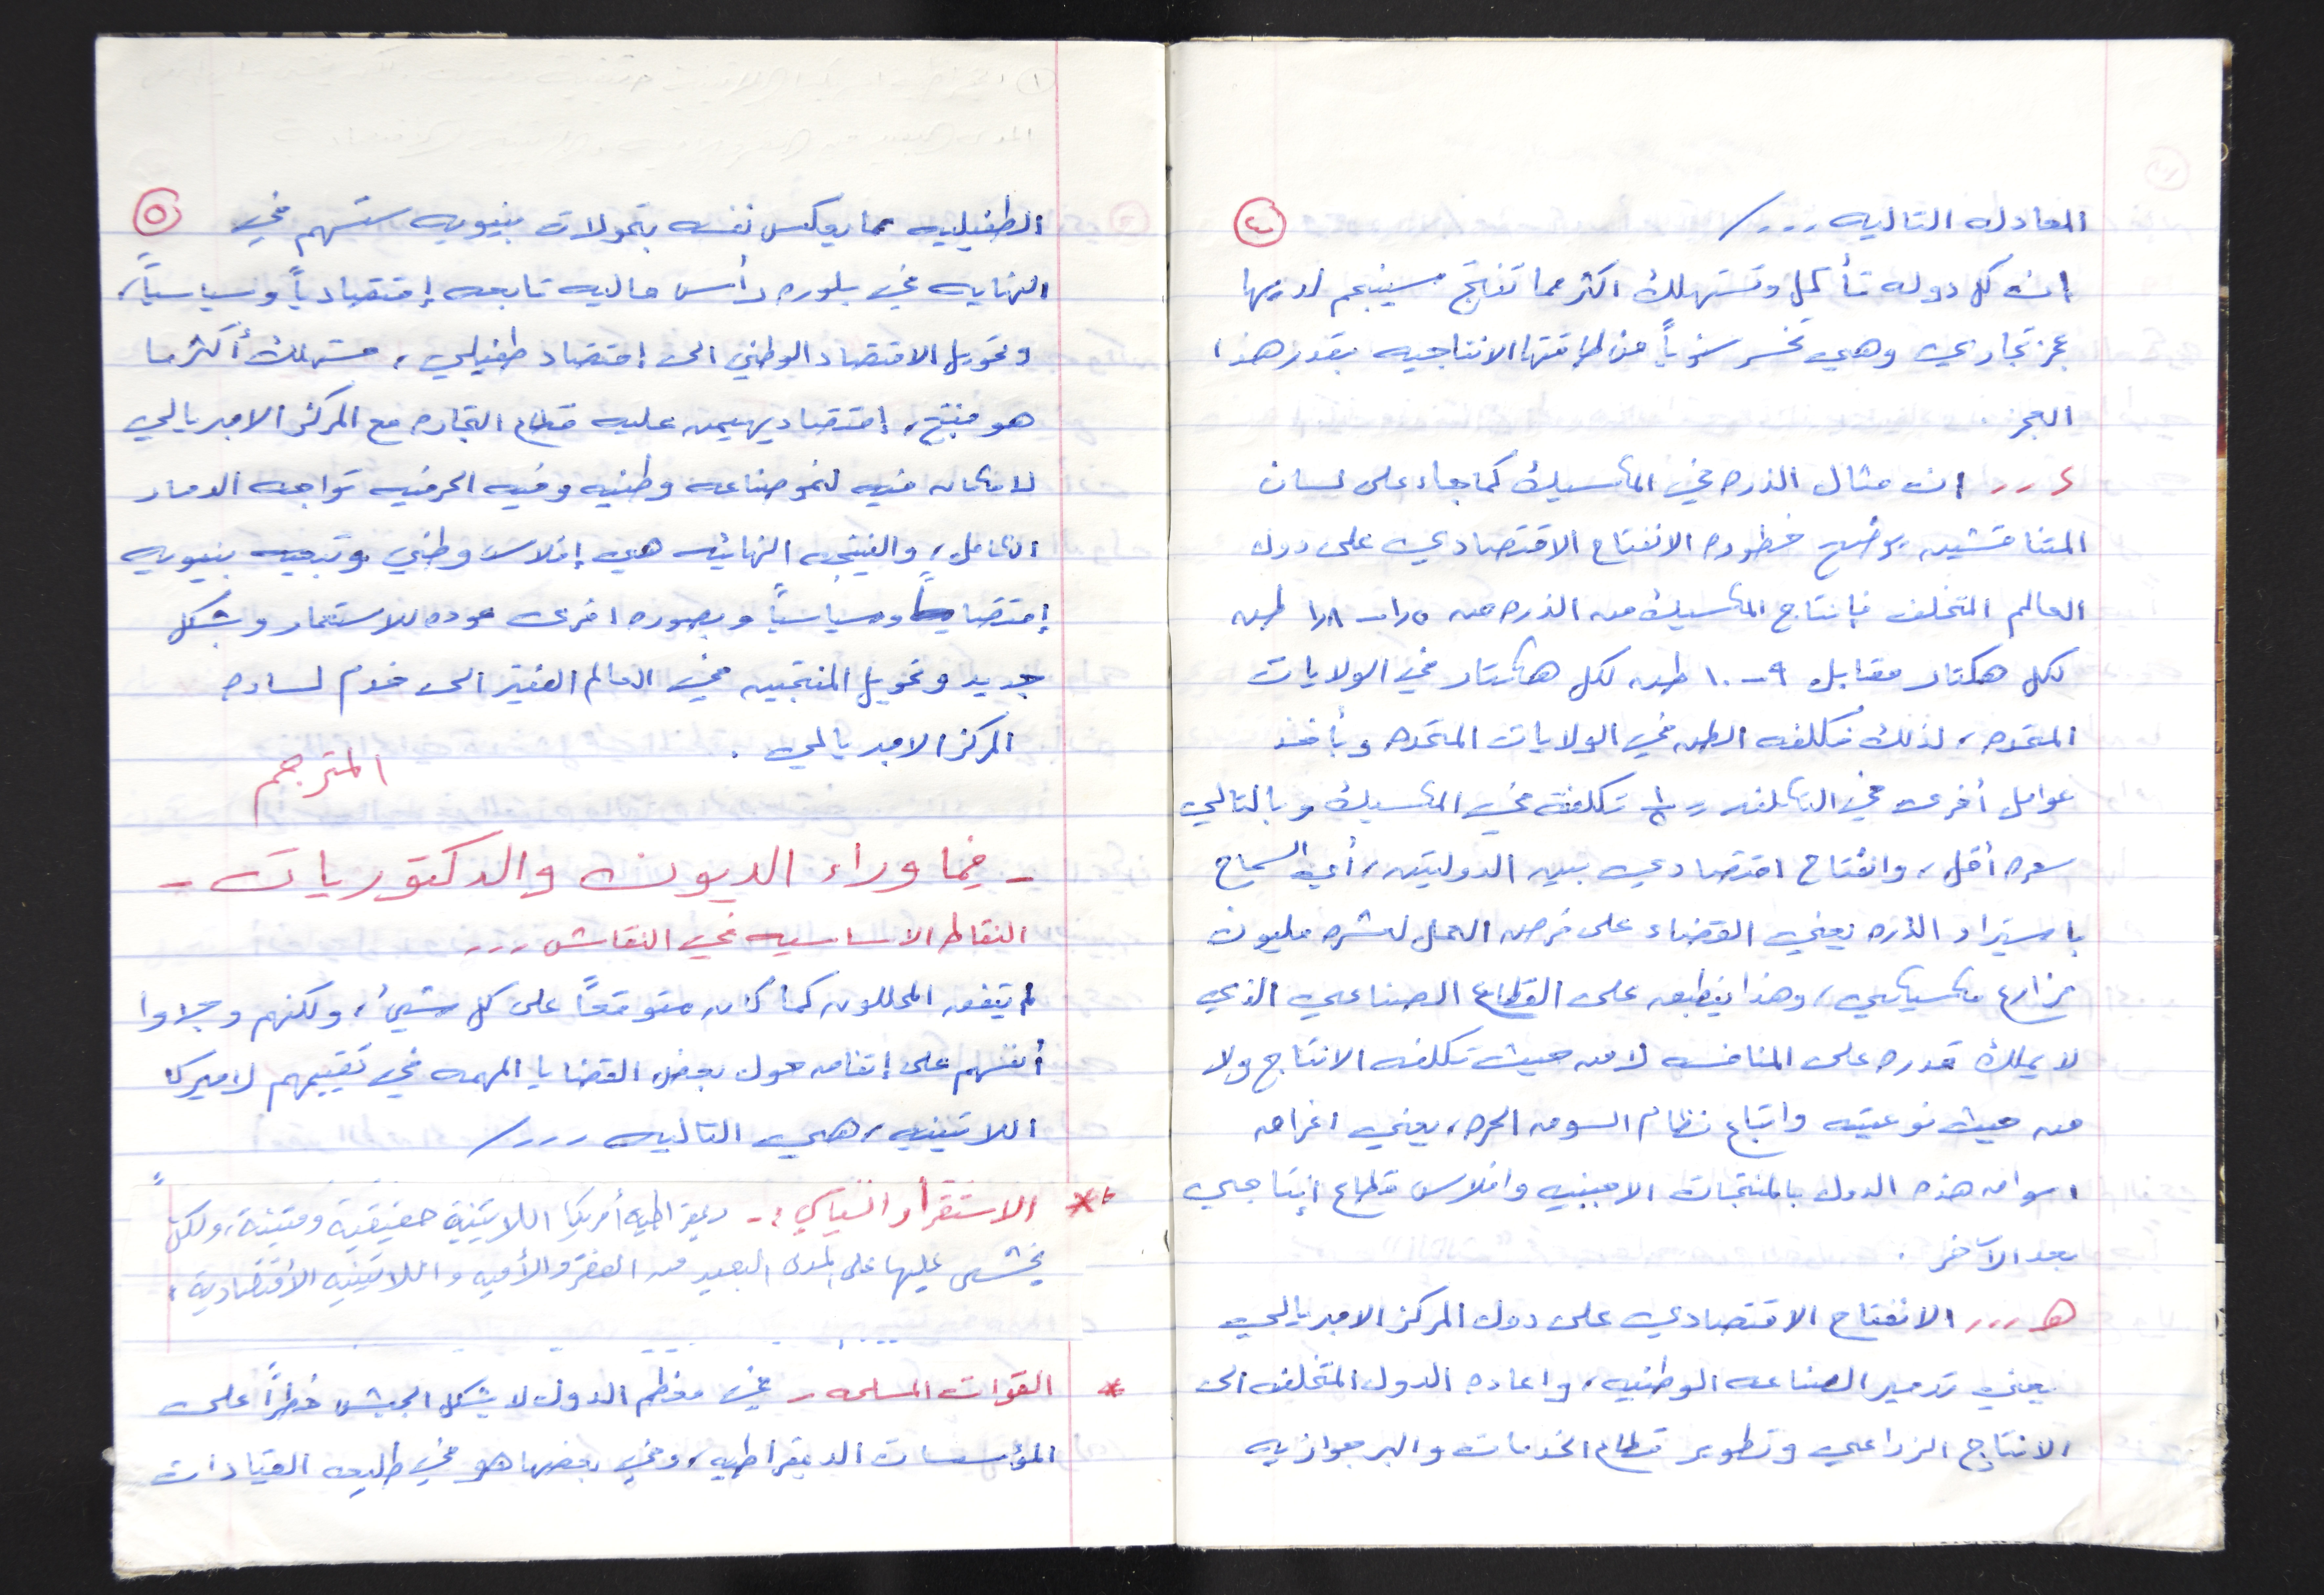 ٤
المعادله التاليه ٫٫٫/
ان كل دوله تأكل وتستهلك اكثر مما تنتج سينجم لديها
عجز تجاري وهي تخسر سنوياً من طاقتها الانتاجيه بقدر هذا
العجز .
٤٫٫ ان مثال الذره في المكسيك كما جاء على لسان
المتناقشين يوضح خطوره الانفتاح الاقتصادي على دول
العالم المتخلف فإنتاج المكسيك من الذره من ٥ر١ - ٨ر١ طن
لكل هكتار مقابل ٩ - ١٠ طن لكل هكتار في الولايات
المتحده، لذلك فكلفه الطن في الولايات المتحده وبأخذ
عوامل أخرى في التكلفه تكلفته في المكسيك وبالتالي
سعره أقل، وانفتاح اقتصادي بين الدولتين، أي السماح
باستيراد الذره يعني القضاء على فرص العمل لعشره مليون
مزارع مكسيكي، وهذا ينطبق على القطاع الصناعي الذي
لا يملك قدره على المنافسه لا من حيث تكلفه الانتاج ولا
من حيث نوعيته واتباع نظام السوق الحره، يعني اغراق
اسواق هذه الدول بالمنتجات الاجنبيه وافلاس قطاع إنتاجي
بعد الآخر .
هـ٫٫٫ الانفتاح الاقتصادي على دول المركز الامبريالي
يعني تدمير الصناعه الوطنيه، واعاده الدول المتخلفه الى
الانتاج الزراعي وتطوير قطاع الخدمات والبرجوازيه
٥
الطفيليه مما يعكس نفسه بتحولات بنيويه ستسهم في
النهايه في بلوره رأس ماليه تابعه إقتصادياً وسياسياً،
وتحويل الاقتصاد الوطني الى إقتصاد طفيلي، مستهلك أكثر ما
هو منتج، إقتصاد يهيمن عليه قطاع التجاره مع المركز الامبريالي
لا مكان فيه لنمو صناعه وطنيه وفيه الحرفيه تواجه الدمار
الكامل، والنتيجه النهائيه هي إفلاس وطني وتبعيه بنيويه
إقتصادياً وسياسياً وبصوره اخرى عوده للاستعمار وبشكل
جديد وتحويل المنتجين في العالم الفقير الى خدم لساده
المركز الامبريالي .
المترجم
- فيما وراء الديون والدكتوريات -
النقاط الاساسيه في النقاش ٫٫٫
لم يتفق المحللون كما كان متوقعاً على كل شيئ، ولكنهم وجدوا
أنفسهم على إتفاق حول بعض القضايا المهمه في تقييمهم لاميركا
اللاتينيه، هي التاليه ٫٫٫/
* الاستقرار السياسي :- ديمقراطيه أمريكا اللاتينية حقيقية ومتينة، ولكن
يخشى عليها على المدى البعيد من الفقر والأميه واللاتينيه الأقتصادية،
* القوات المسلحه ٫ في معظم الدول لا يشكل الجيش خطراً على
المؤسسات الديمقراطيه، وفي بعضها هو في طليعه القيادات